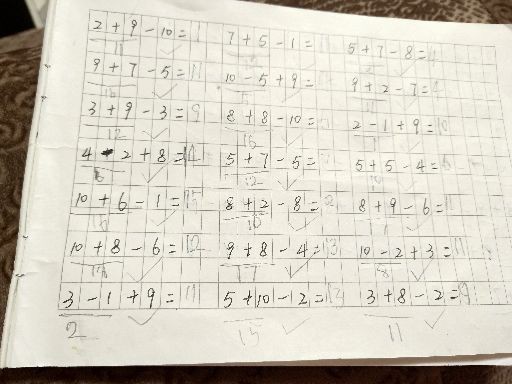 2 + 9 - 10 = 1 7 + 5 - 1 = 11 5 + 7 - 8 = 4
11
9 + 7 - 5 = 11 10 - 5 + 9 = 9 + 2 - 7 = 4
16
3 + 9 - 3 = 9 8 + 8 - 10 = 2 - 1 + 9 = 10
12 16
4 + 2 + 8 = 14 5 + 7 - 5 = 5 + 5 - 4 = 6
6 12
10 + 6 - 1 = 15 8 + 2 - 8 = 2 8 + 9 - 6 = 11
10 17
10 + 8 - 6 = 12 9 + 8 - 4 = 13 10 - 2 + 3 = 11
17 8
3 - 1 + 9 = 11 5 + 10 - 2 = 13 3 + 8 - 2 = 9
2 15 11